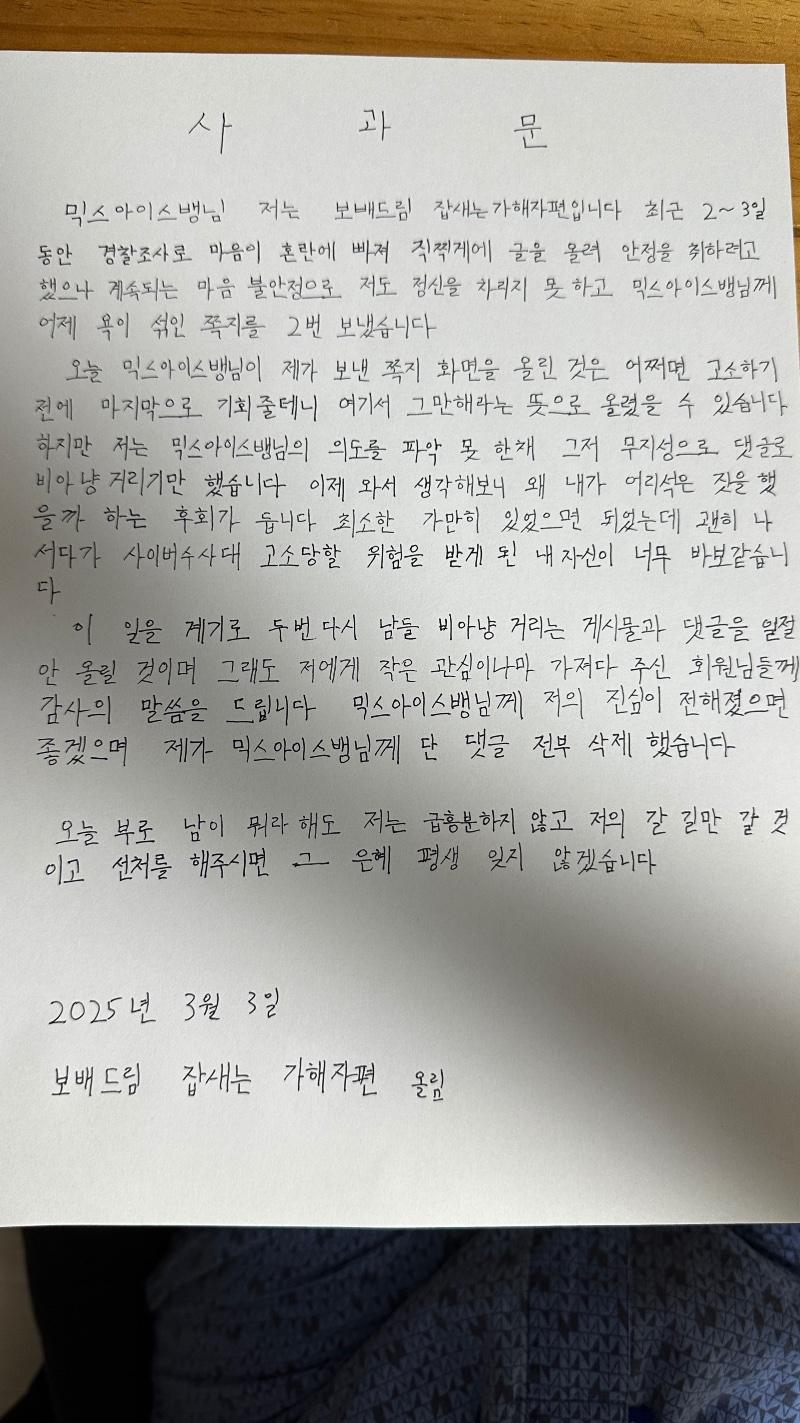 사 과 문
믹스아이스뱅님 저는 보배드림 잡새는가해자편입니다 최근 2~3일
동안 경찰조사로 마음이 혼란에 빠져 직찍게에 글을 올려 안정을 취하려고
했으나 계속되는 마음 불안정으로 저도 정신을 차리지 못 하고 믹스아이스뱅님께
어제 욕이 섞인 쪽지를 2번 보냈습니다
오늘 믹스아이스뱅님이 제가 보낸 쪽지 화면을 올린 것은 어쩌면 고소하기
전에 마지막으로 기회줄테니 여기서 그만해라는 뜻으로 올렸을 수 있습니다
하지만 저는 믹스아이스뱅님의 의도를 파악 못 한채 그저 무지성으로 댓글로
비아냥거리기만 했습니다 이제 와서 생각해보니 왜 내가 어리석은 짓을 했
을까 하는 후회가 듭니다 최소한 가만히 있었으면 되었는데 괜히 나
서다가 사이버수사대 고소당할 위험을 받게 된 내 자신이 너무 바보같습니
다
이 일을 계기로 두번 다시 남들 비아냥 거리는 게시물과 댓글을 일절
안 올릴 것이며 그래도 저에게 작은 관심이나마 가져다 주신 회원님들께
감사의 말씀을 드립니다 믹스아이스뱅님께 저의 진심이 전해졌으면
좋겠으며 제가 믹스아이스뱅님께 단 댓글 전부 삭제 했습니다
오늘 부로 남이 뭐라 해도 저는 급흥분하지 않고 저의 갈 길만 갈 것
이고 선처를 해주시면 그 은혜 평생 잊지 않겠습니다
2025년 3월 3일
보배드림 잡새는 가해자편 올림